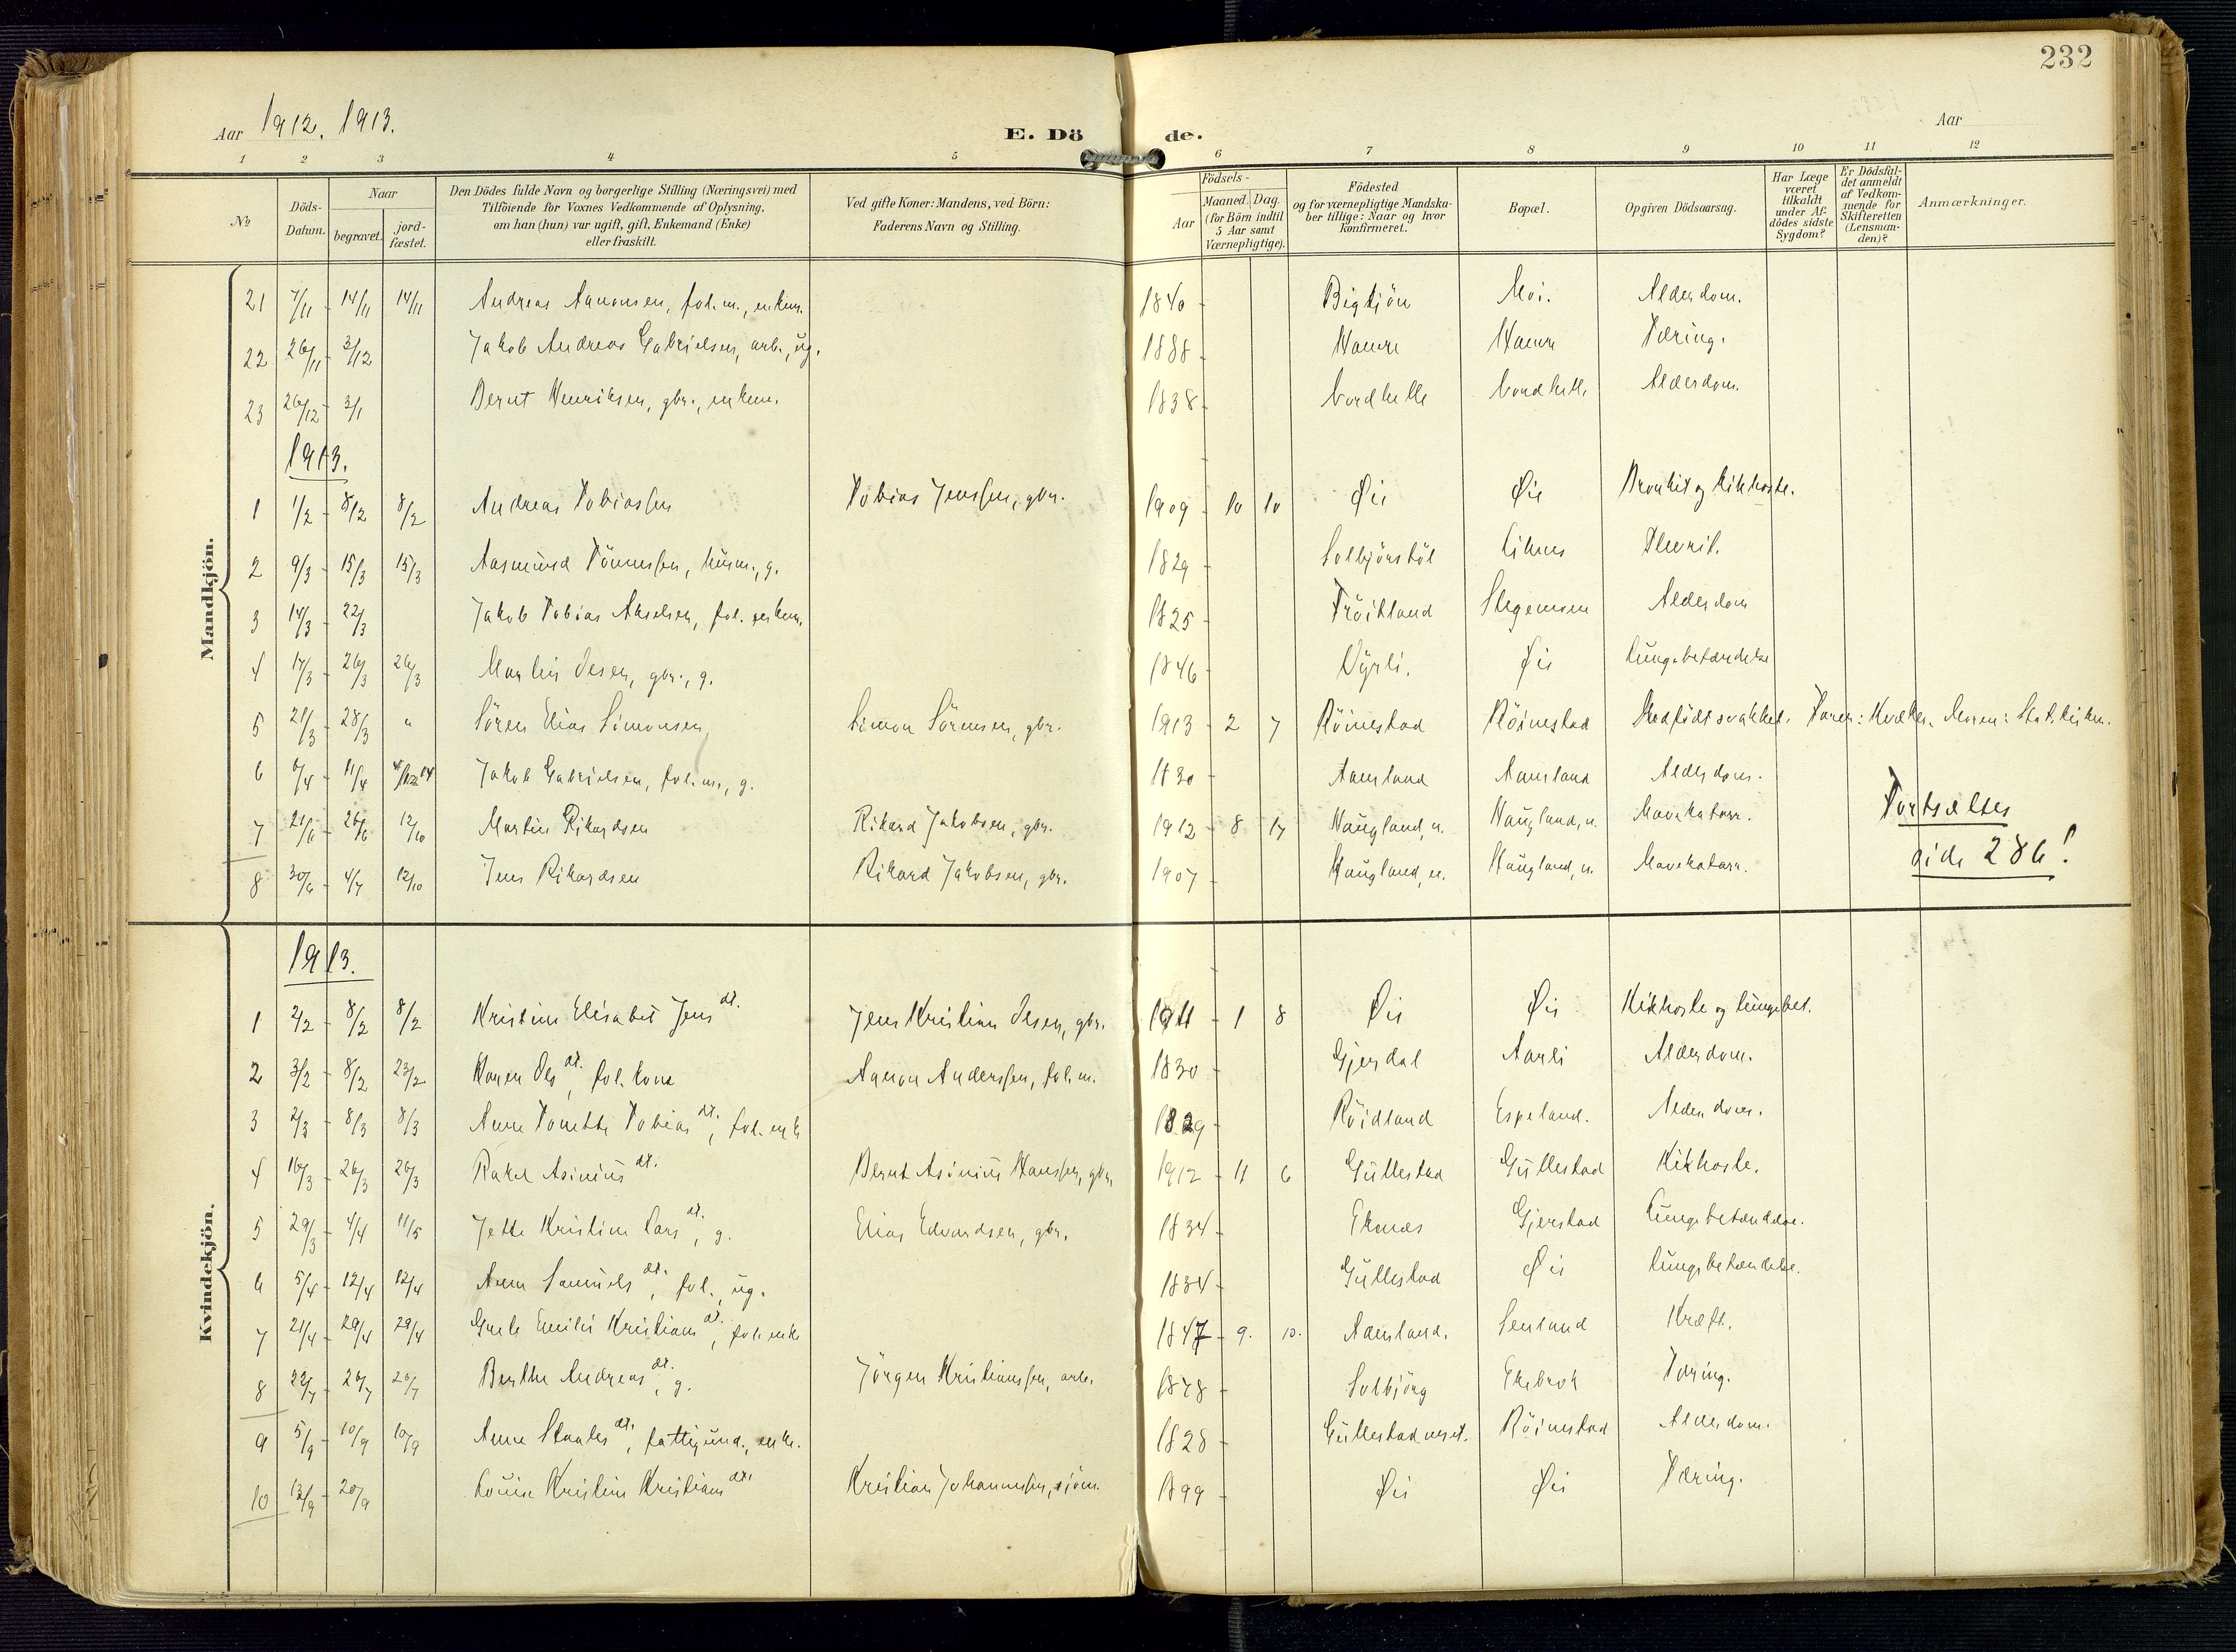 232
Aar 1912. 1913.
E. Dö de.
Aar
1 2 3 4 5 6 7 8 9 10 11 12
No
Döds-Datum.
Naar
begravet.
jord-fæstet.
Den Dödes fulde Navn og borgerlige Stilling (Næringsvei) med
Tilföiende for Voxnes Vedkommende af Oplysning,
om han (hun) var ugift, gift, Enkemand (Enke)
eller fraskilt.
Ved gifte Koner: Mandens, ved Börn:
Faderens Navn og Stilling.
Födsels-
Aar
Maaned. Dag.
(for Börn indtil
5 Aar samt
Værnepligtige).
Födested
og for værnepligtige Mandska-
ber tillige: Naar og hvor
konfirmeret.
Bopæl.
Opgiven Dödsaarsag.
Har Læge
været
tilkaldt
under Af-
dödes sidste
Sygdom?
Er Dödsfal-
det anmeldt
af Vedkom-
mende for
Skifteretten
(Lensman-
den)?
Anmærkninger.
Mandkjön.
21 7/11 - 14/11 14/11 Andreas Aanonsen, fol. m., enkem. 1840 - Bigtjön Moi. Alderdom.
22 26/11 - 3/12 Jakob Andreas Gabrielsen, arb., ug. 1888 - Hamre Hamre Tæring.
23 26/12 - 3/1 Bernt Henriksen, gbr., enkem. 1838 - Nordhelle Nordhelle Alderdom.
1913.
1 1/2 - 8/2 8/2 Andreas Tobiassen Tobias Jenssen, gbr. 1909 - 10 10 Øie Øie Bronkit og kikhoste.
2 9/3 - 15/3 15/3 Aasmund Tönnessen, husm., g. 1829 - Solbjörstöl Liknes Plevrit.
3 14/3 - 22/3 Jakob Tobias Akselsen, fol. enkem. 1825 - Tröitland Stegemoen Alderdom
4 17/3 - 26/3 26/3 Martin Olsen, gbr., g. 1846 - Dyrli. Øie Lungebetændelse
5 21/3 - 28/3 " Sören Elias Simonsen, Simon Sörensen, gbr. 1913 - 2 7 Röinestad Röinestad Medfödt svakhet. Faren: Kvæker. Moren: Statskirken.
6 6/4 - 11/4 Jakob Gabrielsen, fol. m., g. 1830 - Aamland Aamland Alderdom.
7 21/6 - 26/6 12/10 Martin Rikardsen Rikard Jakobsen, gbr. 1912 - 8 17 Haugland, n. Haugland, n. Mavekatarr.
8 30/6 - 4/7 12/10 Jens Rikardsen Rikard Jakobsen, gbr. 1907 - Haugland, n. Haugland, n. Mavekatarr.
Fortsættes
side 286!
Kvindekjön.
1913.
1 2/2 - 8/2 8/2 Kristine Elisabet Jens dt. Jens Kristian Olsen, gbr. 1911 - 1 8 Øie Øie Kikhoste og lungebet.
2 3/2 - 8/2 23/2 Karen Ols dt., fol. kone Aanon Anderssen, fol. m. 1830 - Gjerdal Aarli Alderdom.
3 2/3 - 8/3 8/3 Anne Tonette Tobias dt., fol. enke 1829 - Röidland Espeland. Alderdom.
4 16/3 - 26/3 26/3 Rakel Asinius dt. Bernt Asinius Hanssen, gbr. 1912 - 11 6 Gullestad Gullestad Kikhoste.
5 29/3 - 4/4 11/5 Jette Kristine Lars dt., g. Elias Edvardsen, gbr. 1834 - Eknæs Gjerstad Lungebetændelse.
6 5/4 - 12/4 12/4 Anne Samuels dt., fol., ug. 1834 - Gullestad Øie Lungebetændelse.
7 21/4 - 29/4 29/4 Emilie Kristians dt., fol. enke 1847 - 9. 10. Aamland. Senland Kræft.
8 22/7 - 26/7 26/7 Berthe Andreas dt., g. Jörgen Kristianssen, arb. 1878 - Solbjörg Ekebrok Tæring.
9 5/9 - 10/9 10/9 Anne Staales dt., fattigund., enke. 1828 - Gullestadneset. Röinestad Alderdom.
10 13/9 - 20/9 Lovise Kristine Kristians dt. Kristian Johannessen, sjöm. 1899 - Øie Øie Tæring.